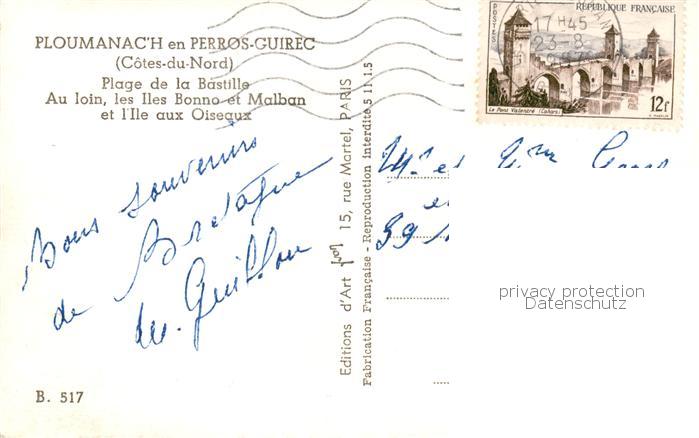 PLOUMANAC'H en PERROS-GUIREC
(Côtes-du-Nord)
Plage de la Bastille
Au loin, les Iles Bonno et Malban
et l'Ile aux Oiseaux
Bons souvenirs
de Bretagne
M. Guillou
B. 517
Editions d'Art Yvon 15, rue Martel, PARIS
Fabrication Française - Reproduction Interdite 5 11 1.5
POSTES
RÉPUBLIQUE FRANÇAISE
17H45
23-8
Le Pont Valentré (Cahors)
12f
Mr et Mme
et
privacy protection
Datenschutz